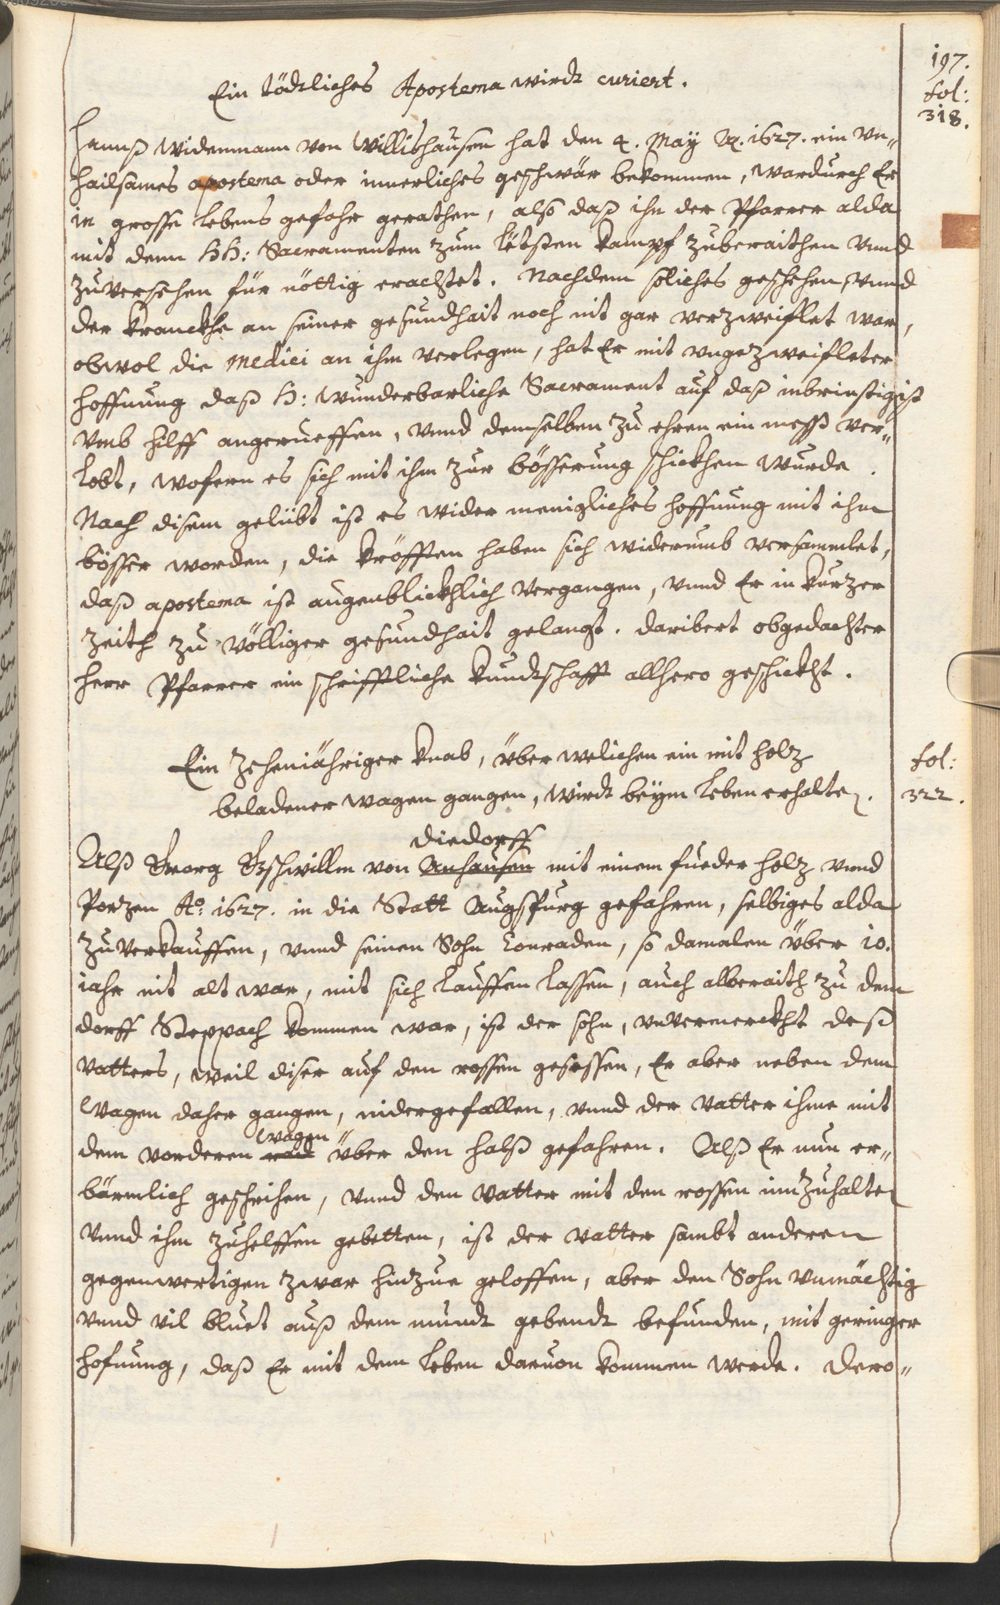 197.
Ein tödtliches Apostema wirdt curiert.
fol:
318.
Hannß Widenmann von Willishausen hat den 4. May Aō. 1627. ein vn=
hailsames apostema oder innerliches geschwär bekommen, wardurch Er
in grosse lebens gefahr gerathen, also daß ihn der Pfarrer alda
mit denn HH: Sacramenten zum letsten kampf zuberaithen vnnd
zuversehen für nöttig erachtet. Nachdem soliches geschehen, vnnd
der kranckhe an seiner gesundhait noch nit gar verzweiflet war,
obwol die Medici an ihm verlegen, hat Er mit vngezweifleter
hoffnung daß H: Wunderbarliche Sacrament auf daß inbrinstigist
vmb hilff angerueffen, vnnd demselben zu ehren ein mess ver=
lobt, wofern es sich mit ihm zur bösserung schickhen wurde.
Nach disem gelübt ist es wider menigliches hoffnung mit ihm
bösser worden, die kröfften haben sich widerumb versammlet,
daß apostema ist augenblickhlich vergangen, vnnd Er in kurzer
zeith zu völliger gesundhait gelangt. daribert obgedachter
herr Pfarrer ein schrifftliche kundtschafft allhero geschickht.
Ein zehenjähriger knab, über welichen ein mit holz
fol:
beladener wagen gangen, wirdt beym leben erhalten.
322.
diedorff
Alß Georg von Anhausen mit einem fueder holz vnnd
Porzen Aō: 1627. in die Statt Augspurg gefahren, selbiges alda
zuverkauffen, vnnd seinen Sohn Conraden, so damalen über 10.
iahr nit alt war, mit sich lauffen lassen, auch alberaith zu dem
dorff Steppach kommen war, ist der sohn, vnvermerckht deß
vatters, weil diser auf den rossen gesessen, Er aber neben dem
wagen daher gangen, nidergefallen, vnnd der vatter ihme mit
wagen
dem vorderen rad über den halß gefahren. Alß Er nun er=
bärmlich geschrihen, vnnd den vatter mit den rossen innzuhalten
vnnd ihm zuhelffen gebetten, ist der vatter sambt anderen
gegenwertigen zwar hinzue geloffen, aber den Sohn vnmächtig
vnnd vil bluet auß dem mundt gebendt befunden, mit geringer
hofnung, daß Er mit dem leben daruon kommen werde. dero=